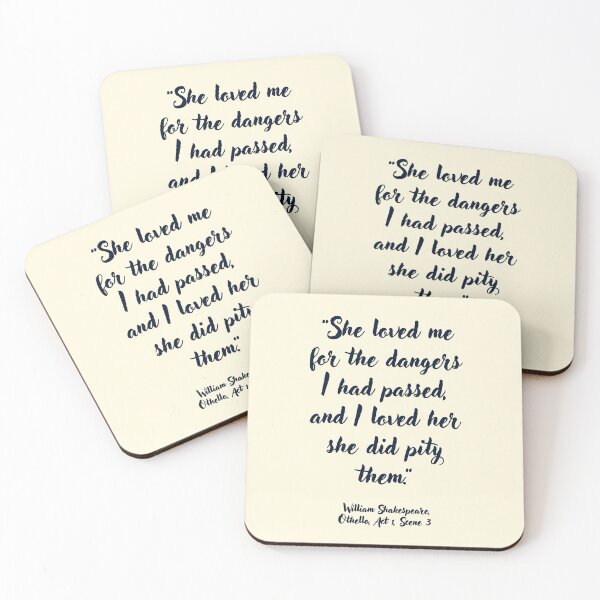 “She loved me
for the dangers
I had passed,
and I her
pity
“She loved me
for the dangers
I had passed,
and I loved her
she did pity
“She loved me
for the dangers
I had passed,
and I loved her
she did pity
them.“
William
Othello, Act 1
“She loved me
for the dangers
I had passed,
and I loved her
she did pity
them.“
William Shakespeare,
Othello, Act 1, Scene 3